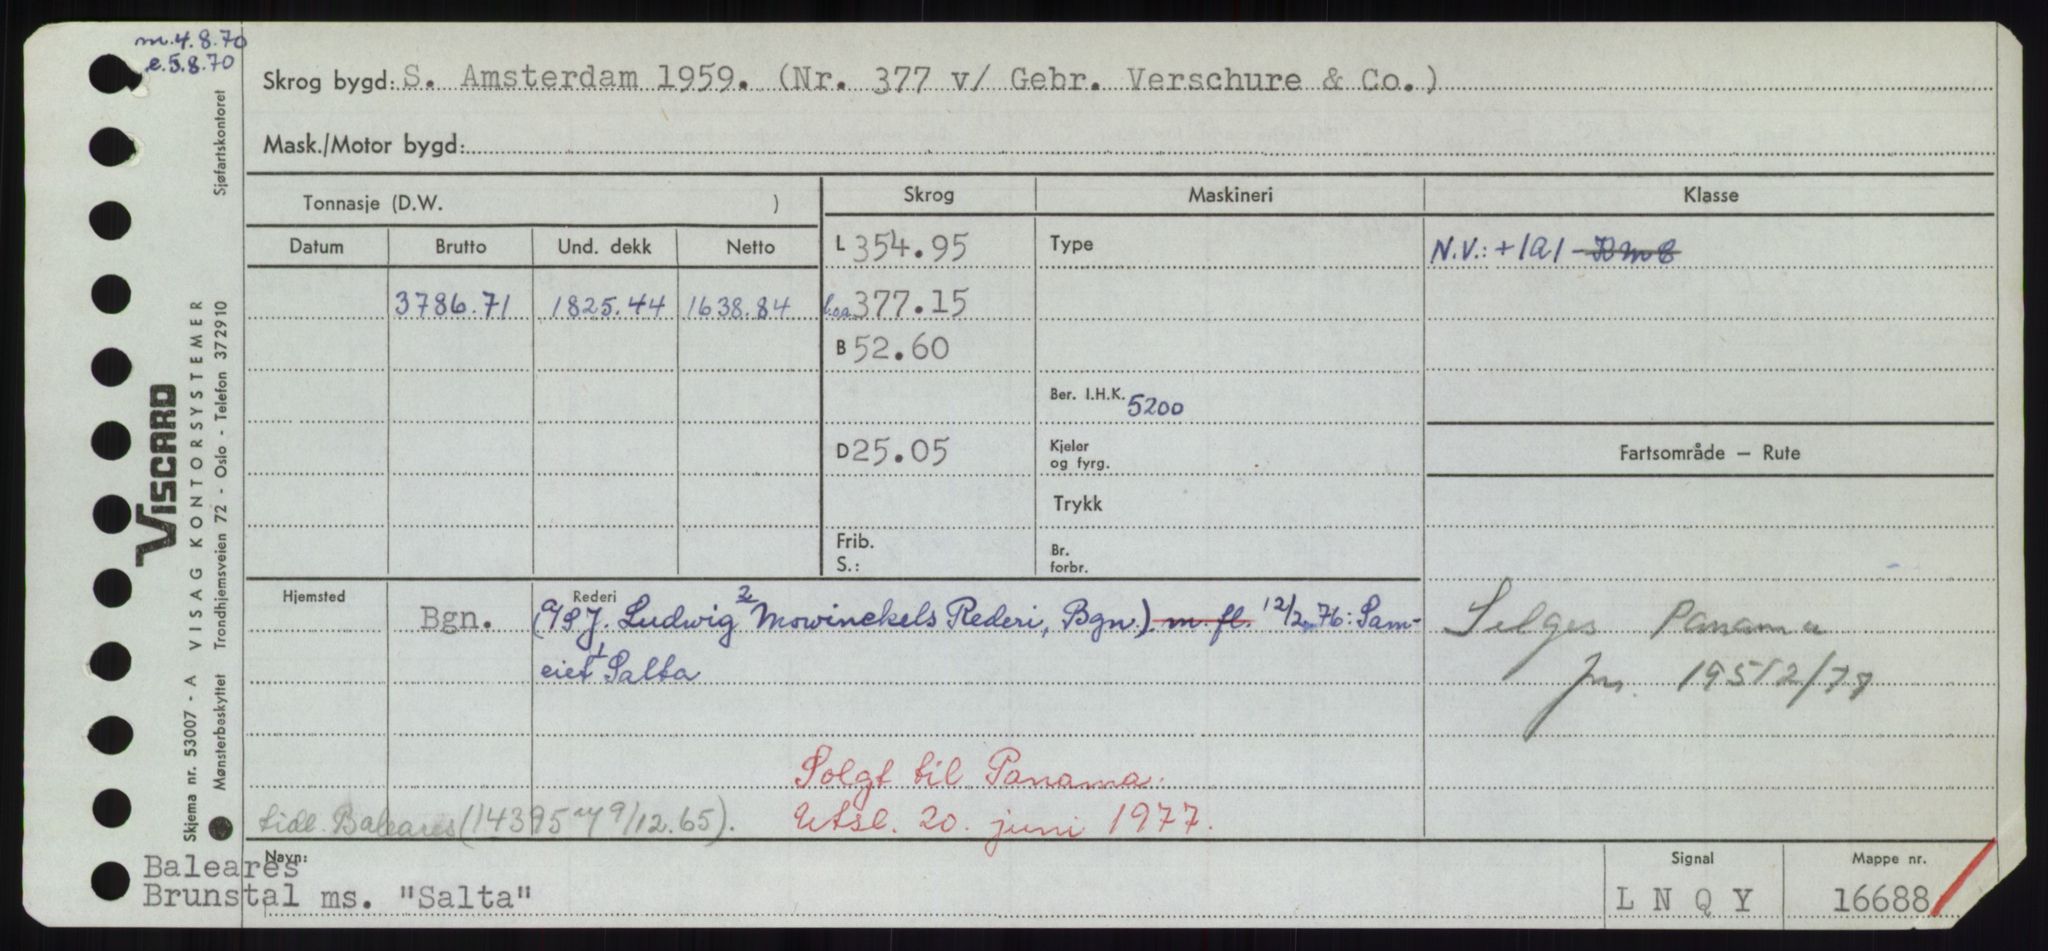 m.4.8.70
e.5.8.70
Skrog bygd: S. Amsterdam 1959. (Nr. 377 v/ Gebr. Verschure & Co.)
Mask./Motor bygd:
Tonnasje (D.W. )
Skrog
Maskineri
Klasse
Datum Brutto Und. dekk Netto
L 354.95
Type
N.V.: +1A1
3786.71 1825.44 1638.84
l.oa. 377.15
B 52.60
Ber. I.H.K. 5200
D 25.05
Kjeler
og fyrg.
Fartsområde – Rute
Trykk
Frib.
S.:
Br.
forbr.
Hjemsted
Bgn.
Rederi
(A/S J. Ludwig Mowinckels Rederi, Bgn.) m. fl. 12/2.76: Sam-
eiet Salta
Selges Panama
jnr. 19512/77
Solgt til Panama.
Utsl. 20. juni 1977.
tidl. Baleares (14395 9/12.65).
Navn:
Baleares
Brunstal ms. "Salta"
Signal
L N Q Y
Mappe nr.
16688
Sjøfartskontoret
VISCARD
VISAG KONTORSYSTEMER
Trondhjemsveien 72 - Oslo - Telefon 372910
Skjema nr. 53007 - A
Mønsterbeskyttet